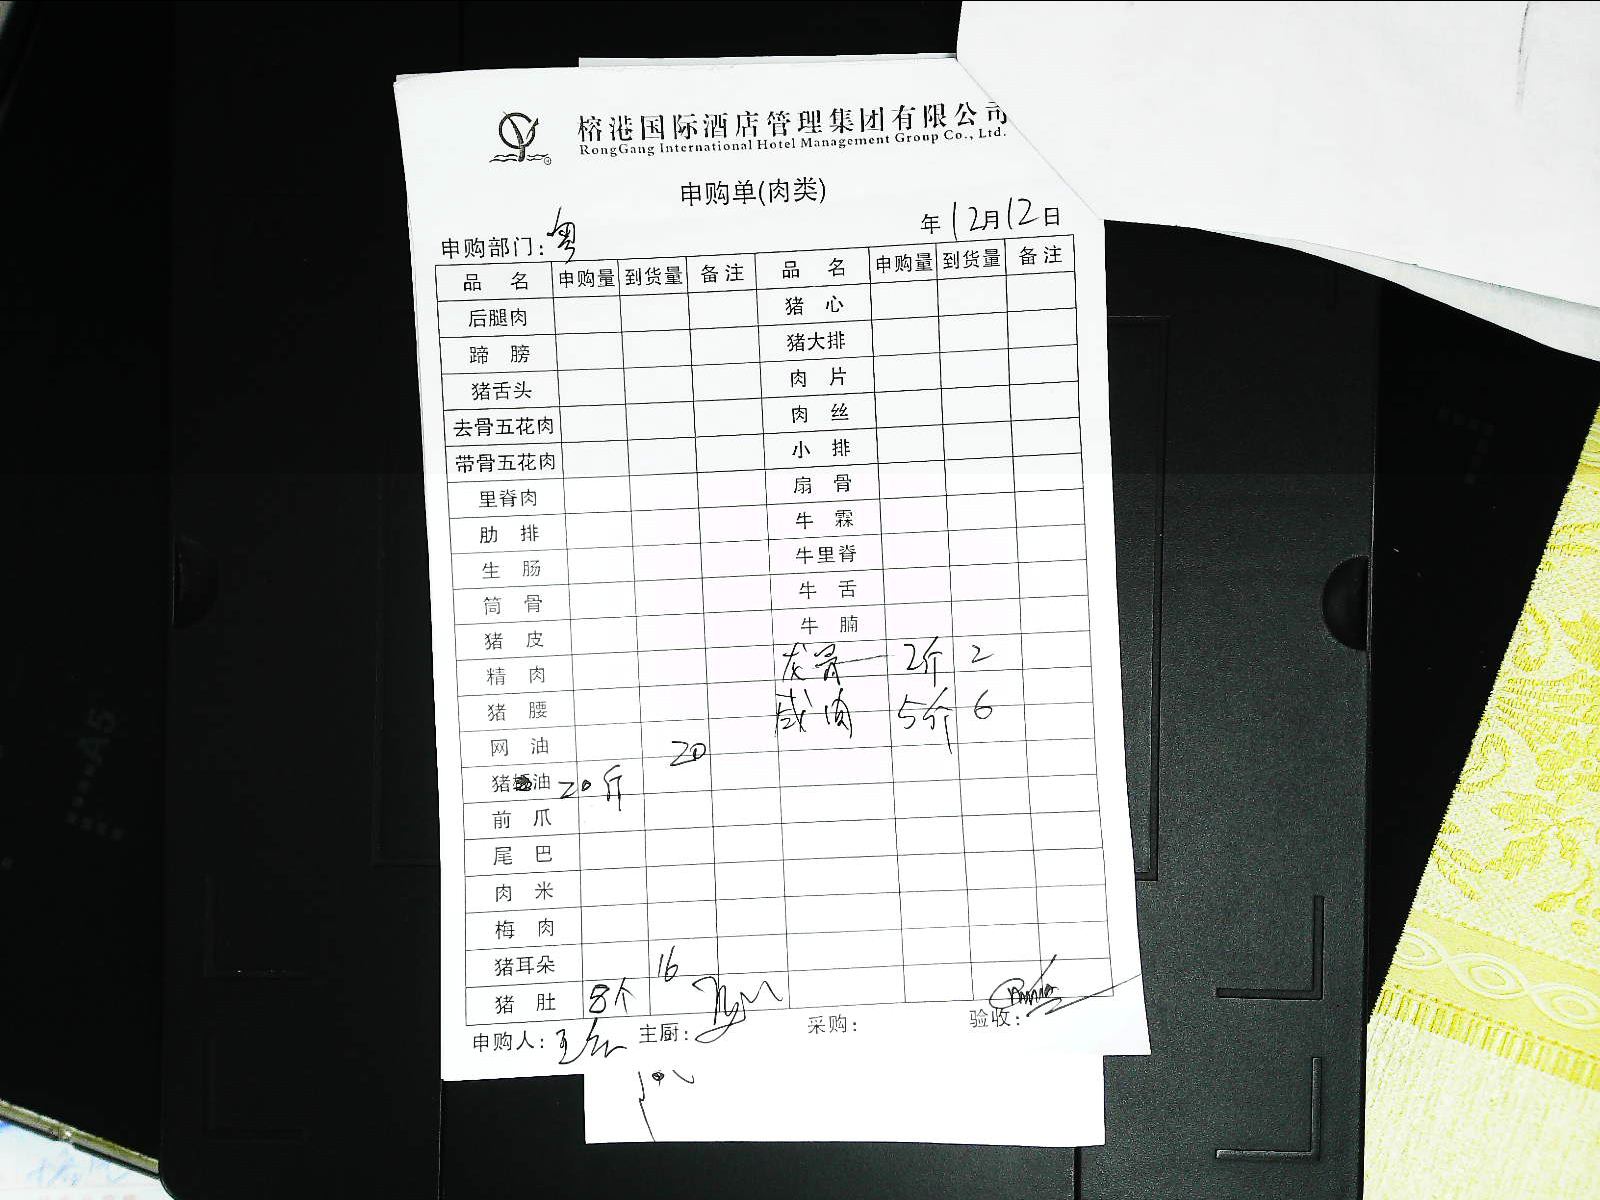 榕港国际酒店管理集团有限公司
RongGang International Hotel Management Group Co., Ltd.
申购单(肉类)
申购部门：粤 年12月12日
品 名 申购量 到货量 备注 品 名 申购量 到货量 备注
后腿肉 猪 心
蹄 膀 猪大排
猪舌头 肉 片
去骨五花肉 肉 丝
带骨五花肉 小 排
里脊肉 扇 骨
肋 排 牛 霖
生 肠 牛里脊
筒 骨 牛 舌
猪 皮 牛 腩
精 肉 龙骨 2斤 2
猪 腰 咸肉 5斤 6
网 油 20
猪油 20斤
前 爪
尾 巴
肉 米
梅 肉
猪耳朵 16
猪 肚 8个
申购人：王 主厨： 采购： 验收：
A5